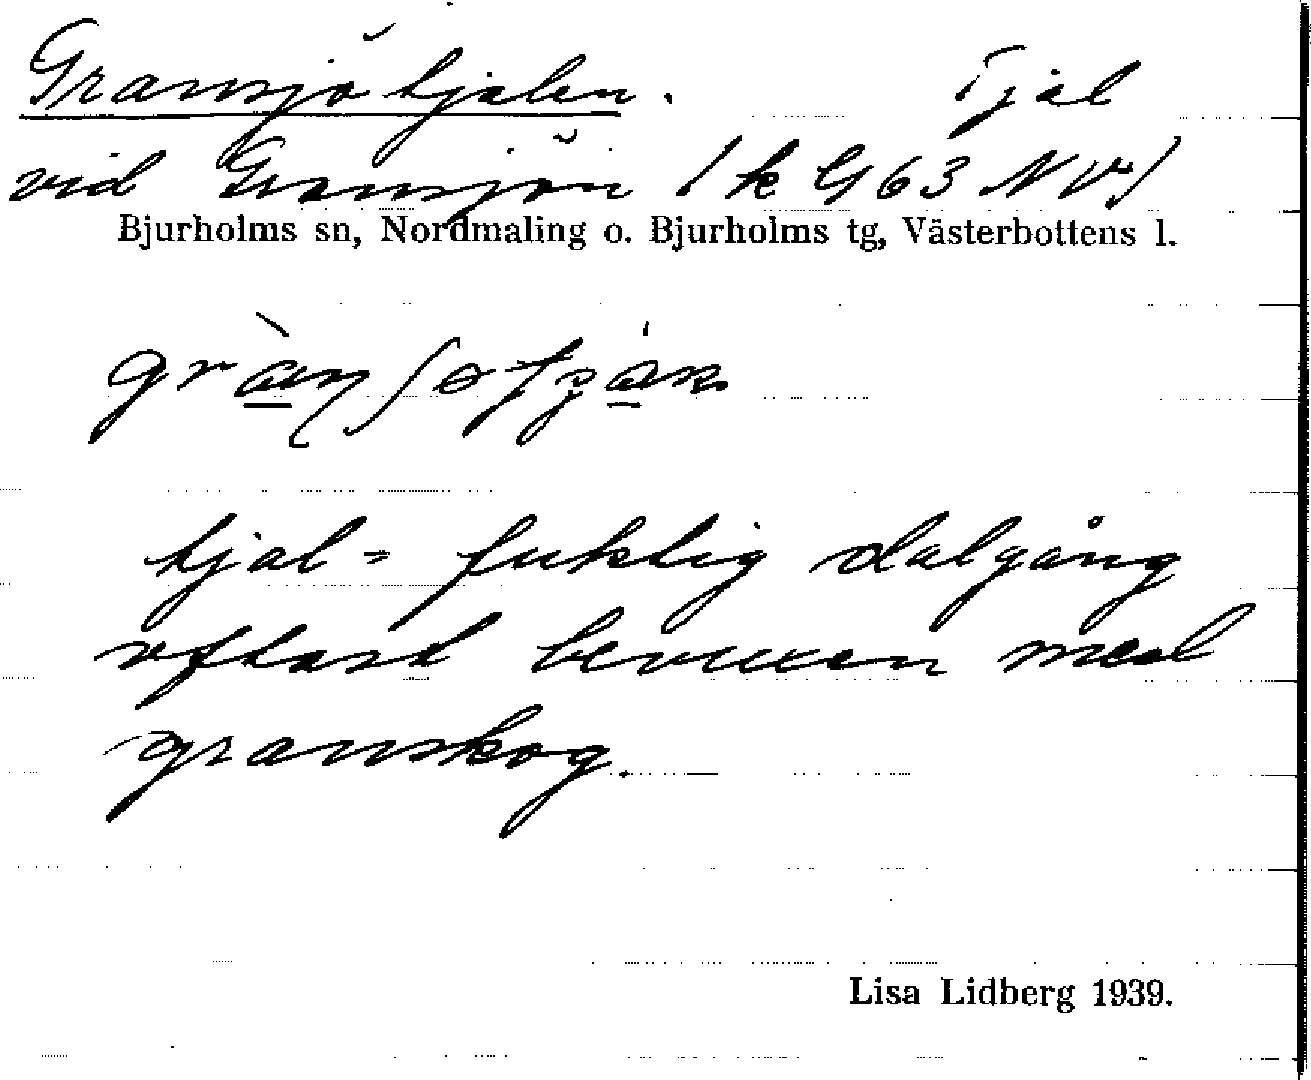 Gransjötjalen. Tjäl
vid Gransjön (k G 63 NV)
Bjurholms sn, Nordmaling o. Bjurholms tg, Västerbottens l.
tjal = fuktig dalgång
oftast bevuxen med
granskog.
Lisa Lidberg 1939.